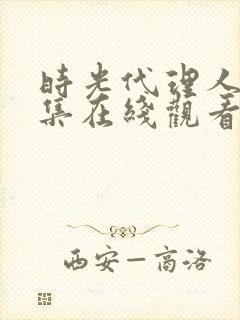 時光代理人
集在綫觀看
西安—高洛